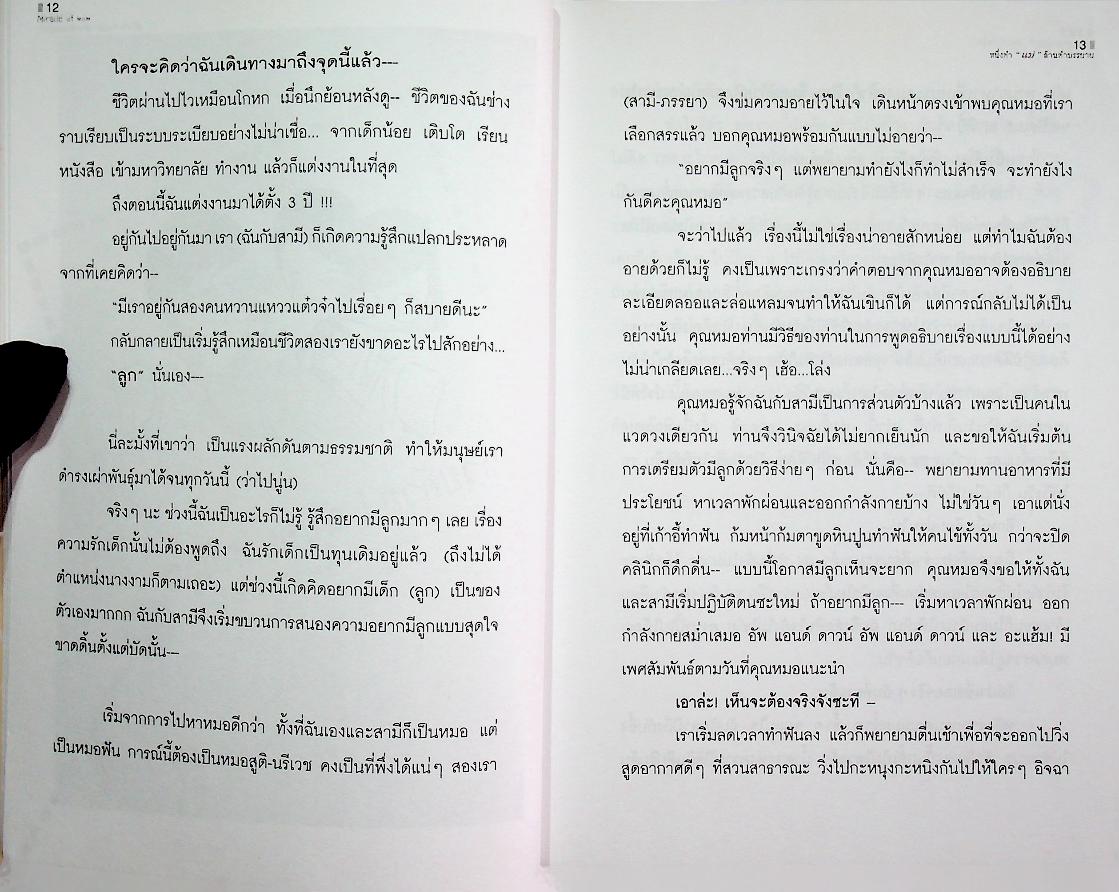 12
Miracle of
ใครจะคิดว่าฉันเดินทางมาถึงจุดนี้แล้ว---
ชีวิตผ่านไปไวเหมือนโกหก เมื่อนึกย้อนหลังดู-- ชีวิตของฉันช่าง
ราบเรียบเป็นระบบระเบียบอย่างไม่น่าเชื่อ... จากเด็กน้อย เติบโต เรียน
หนังสือ เข้ามหาวิทยาลัย ทำงาน แล้วก็แต่งงานในที่สุด
ถึงตอนนี้ฉันแต่งงานมาได้ตั้ง 3 ปี !!!
อยู่กันไปอยู่กันมา เรา (ฉันกับสามี) ก็เกิดความรู้สึกแปลกประหลาด
จากที่เคยคิดว่า--
"มีเราอยู่กันสองคนหวานแหววแต๋วจ๋าไปเรื่อยๆ ก็สบายดีนะ"
กลับกลายเป็นเริ่มรู้สึกเหมือนชีวิตสองเรายังขาดอะไรไปสักอย่าง...
"ลูก" นั่นเอง---
นี่ละมั้งที่เขาว่า เป็นแรงผลักดันตามธรรมชาติ ทำให้มนุษย์เรา
ดำรงเผ่าพันธุ์มาได้จนทุกวันนี้ (ว่าไปนู่น)
จริงๆ นะ ช่วงนี้ฉันเป็นอะไรก็ไม่รู้ รู้สึกอยากมีลูกมากๆ เลย เรื่อง
ความรักเด็กนั้นไม่ต้องพูดถึง ฉันรักเด็กเป็นทุนเดิมอยู่แล้ว (ถึงไม่ได้
ตำแหน่งนางงามก็ตามเถอะ) แต่ช่วงนี้เกิดคิดอยากมีเด็ก (ลูก) เป็นของ
ตัวเองมากกก ฉันกับสามีจึงเริ่มขบวนการสนองความอยากมีลูกแบบสุดใจ
ขาดดิ้นตั้งแต่บัดนั้น---
เริ่มจากการไปหาหมอดีกว่า ทั้งที่ฉันเองและสามีก็เป็นหมอ แต่
เป็นหมอฟัน การณ์นี้ต้องเป็นหมอสูติ-นรีเวช คงเป็นที่พึ่งได้แน่ๆ สองเรา
13
หนึ่งคำ "แม่" ล้านคำบรรยาย
(สามี-ภรรยา) จึงข่มความอายไว้ในใจ เดินหน้าตรงเข้าพบคุณหมอที่เรา
เลือกสรรแล้ว บอกคุณหมอพร้อมกันแบบไม่อายว่า--
"อยากมีลูกจริงๆ แต่พยายามทำยังไงก็ทำไม่สำเร็จ จะทำยังไง
กันดีคะคุณหมอ"
จะว่าไปแล้ว เรื่องนี้ไม่ใช่เรื่องน่าอายสักหน่อย แต่ทำไมฉันต้อง
อายด้วยก็ไม่รู้ คงเป็นเพราะเกรงว่าคำตอบจากคุณหมออาจต้องอธิบาย
ละเอียดลออและล่อแหลมจนทำให้ฉันเขินก็ได้ แต่การณ์กลับไม่ได้เป็น
อย่างนั้น คุณหมอท่านมีวิธีของท่านในการพูดอธิบายเรื่องแบบนี้ได้อย่าง
ไม่น่าเกลียดเลย...จริงๆ เฮ้อ...โล่ง
คุณหมอรู้จักฉันกับสามีเป็นการส่วนตัวบ้างแล้ว เพราะเป็นคนใน
แวดวงเดียวกัน ท่านจึงวินิจฉัยได้ไม่ยากเย็นนัก และขอให้ฉันเริ่มต้น
การเตรียมตัวมีลูกด้วยวิธีง่ายๆ ก่อน นั่นคือ-- พยายามทานอาหารที่มี
ประโยชน์ หาเวลาพักผ่อนและออกกำลังกายบ้าง ไม่ใช่วันๆ เอาแต่นั่ง
อยู่ที่เก้าอี้ทำฟัน ก้มหน้าก้มตาขูดหินปูนทำฟันให้คนไข้ทั้งวัน กว่าจะปิด
คลินิกก็ดึกดื่น-- แบบนี้โอกาสมีลูกเห็นจะยาก คุณหมอจึงขอให้ทั้งฉัน
และสามีเริ่มปฏิบัติตนซะใหม่ ถ้าอยากมีลูก--- เริ่มหาเวลาพักผ่อน ออก
กำลังกายสม่ำเสมอ อัพ แอนด์ ดาวน์ อัพ แอนด์ ดาวน์ และ อะแฮ้ม! มี
เพศสัมพันธ์ตามวันที่คุณหมอแนะนำ
เอาล่ะ! เห็นจะต้องจริงจังซะที –
เราเริ่มลดเวลาทำฟันลง แล้วก็พยายามตื่นเช้าเพื่อที่จะออกไปวิ่ง
สูดอากาศดีๆ ที่สวนสาธารณะ วิ่งไปกะหนุงกะหนิงกันไปให้ใครๆ อิจฉา